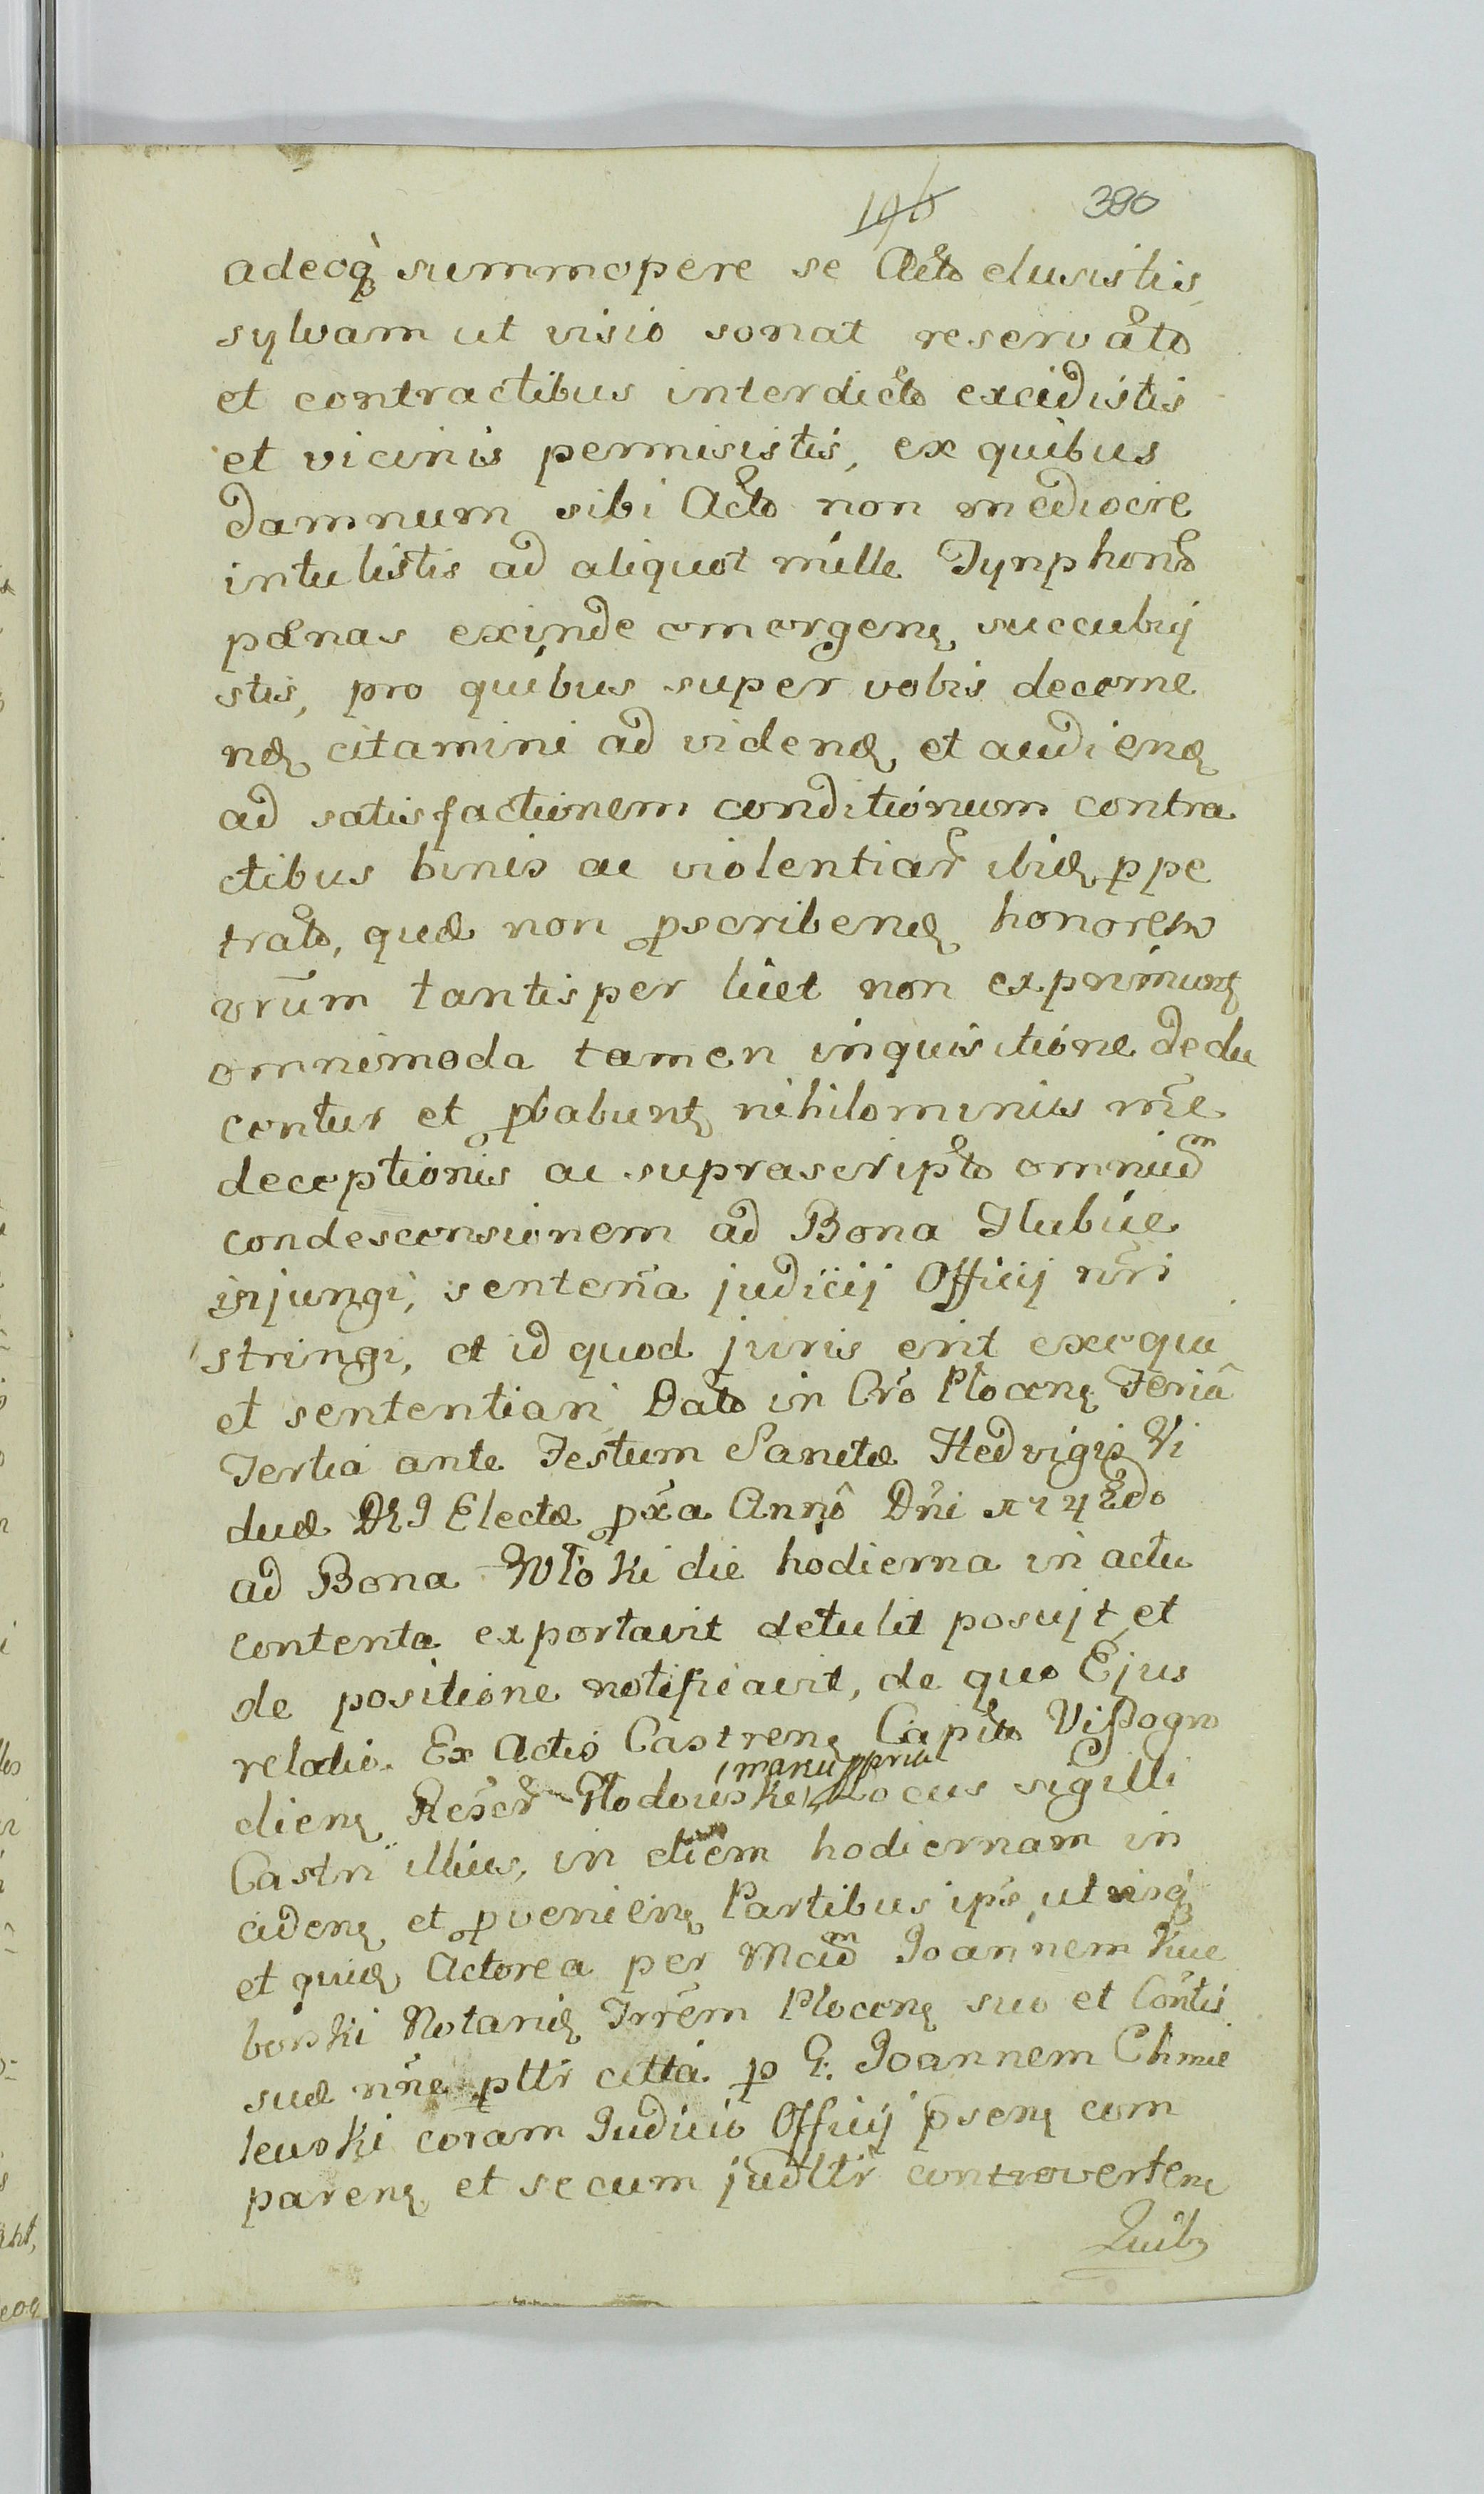 196 380
adeoq̀ summopere se Acto elusistis,
sylvam ut visio sonat reservato
et contractibus interdicto excidistis
et vicinis permisistis, ex quibus
damnum sibi Acto non mediocre
intulistis ad aliquot mille Tynphono
pænas exinde emergenę succubuj
stis, pro quibus super vobis decerne
ndę citamini ad videndę et audiendę
ad satisfactionem conditionum contra
ctibus binis ac violentiar ibidę ppe
trato, quæ non pscribendę honorem
vrūm tantisper licet non exprimuntę
omnimoda tamen inquisitione dedu
centur et pbabuntę nihilominus rñe
deceptionis ac suprascripto omnium
condescensionem ad Bona Hubice
injungi, sentenña judicij Officij nñri
stringi, et id quod juris erit exequi
et sententiari Dato in Cro Plocenę Feriâ
Tertia ante Festum Sanctæ Hedvigis Vi
duæ Electæ pxa Annô Dñi 1742do
ad Bona Wloki die hodierna in actu
contenta exportavit detulit posujt et
de positione notificavit, de quo Ejus
relatio. Ex Actis Castrenę Capito Vissogro
dienę Rescr Plodowski manu ppria Locus sigilli
Castri illius, in diem hodiernam in
cidenę et pvenienę Partibus ipse utrisq
et quidę Actorea per Mcum Joannem Kue
borski Notarię Trrem Plocenę suo et Contis
suæ nñe pltr citta p G. Joannem Chmie
lewski coram Judicio Officij psenę com
parenę et secum judltr controvertenę
Quib9